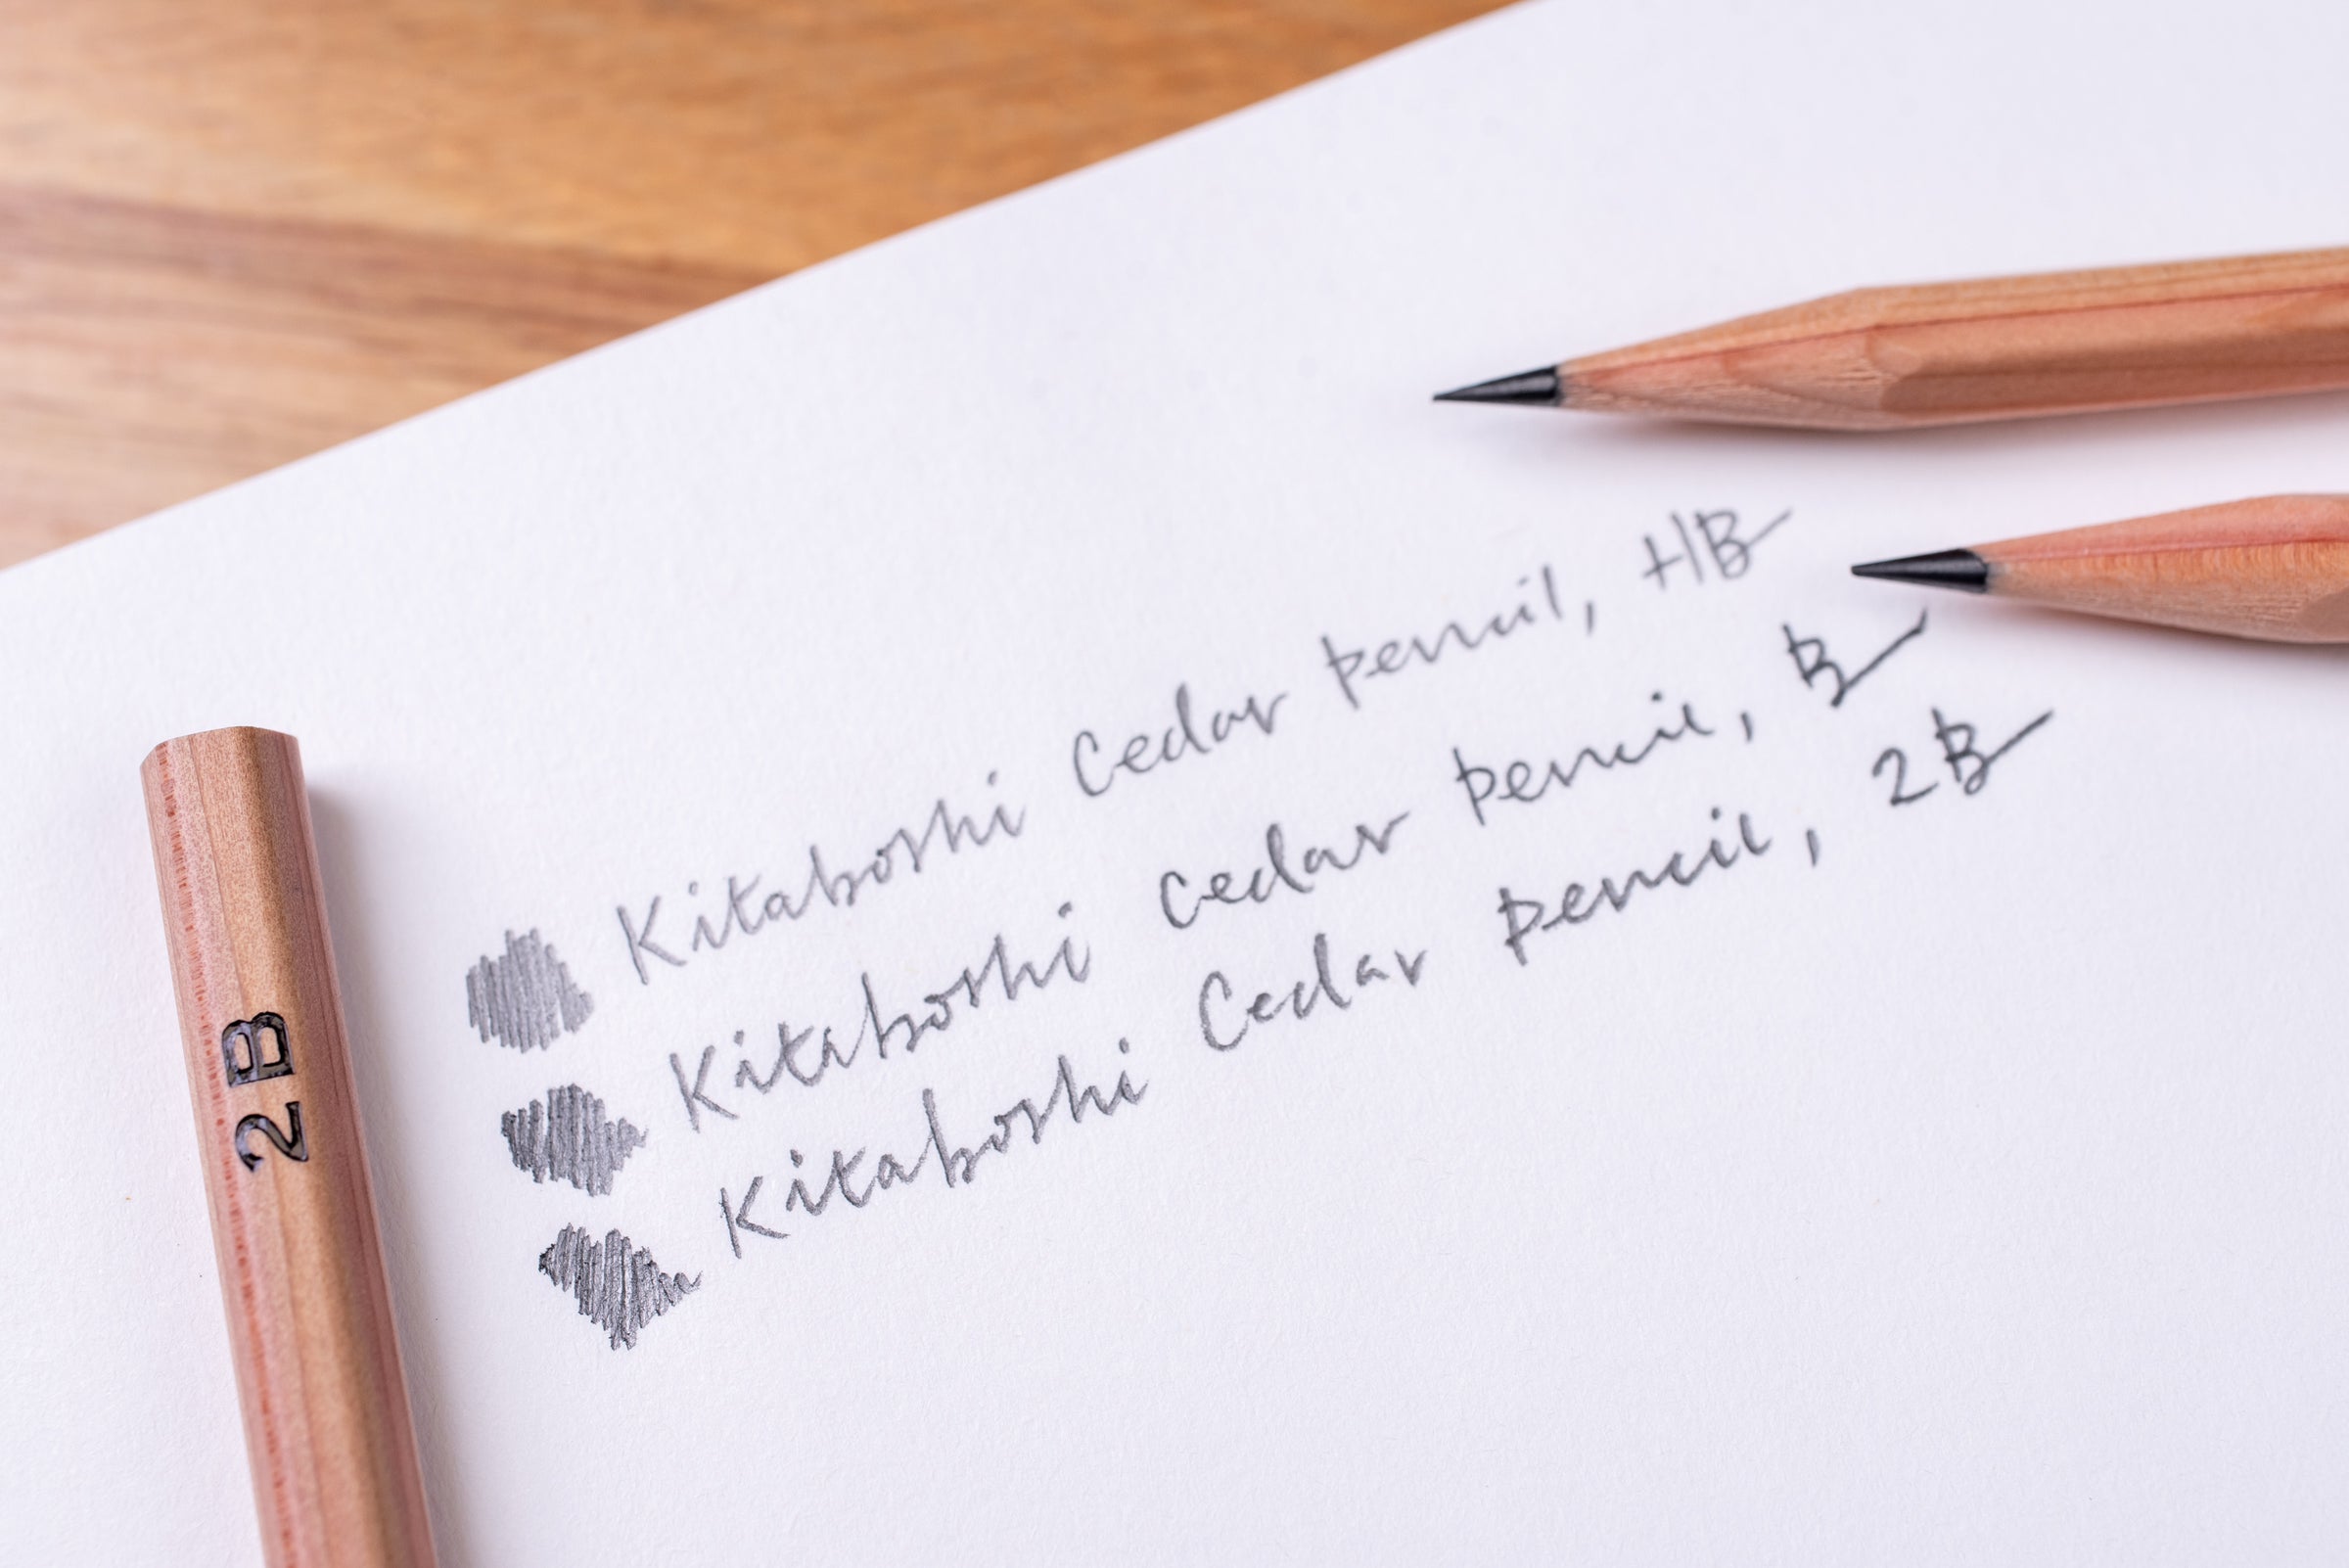 Kitaboshi Cedar pencil, HB
Kitaboshi Cedar pencil, B
Kitaboshi Cedar pencil, 2B
2B